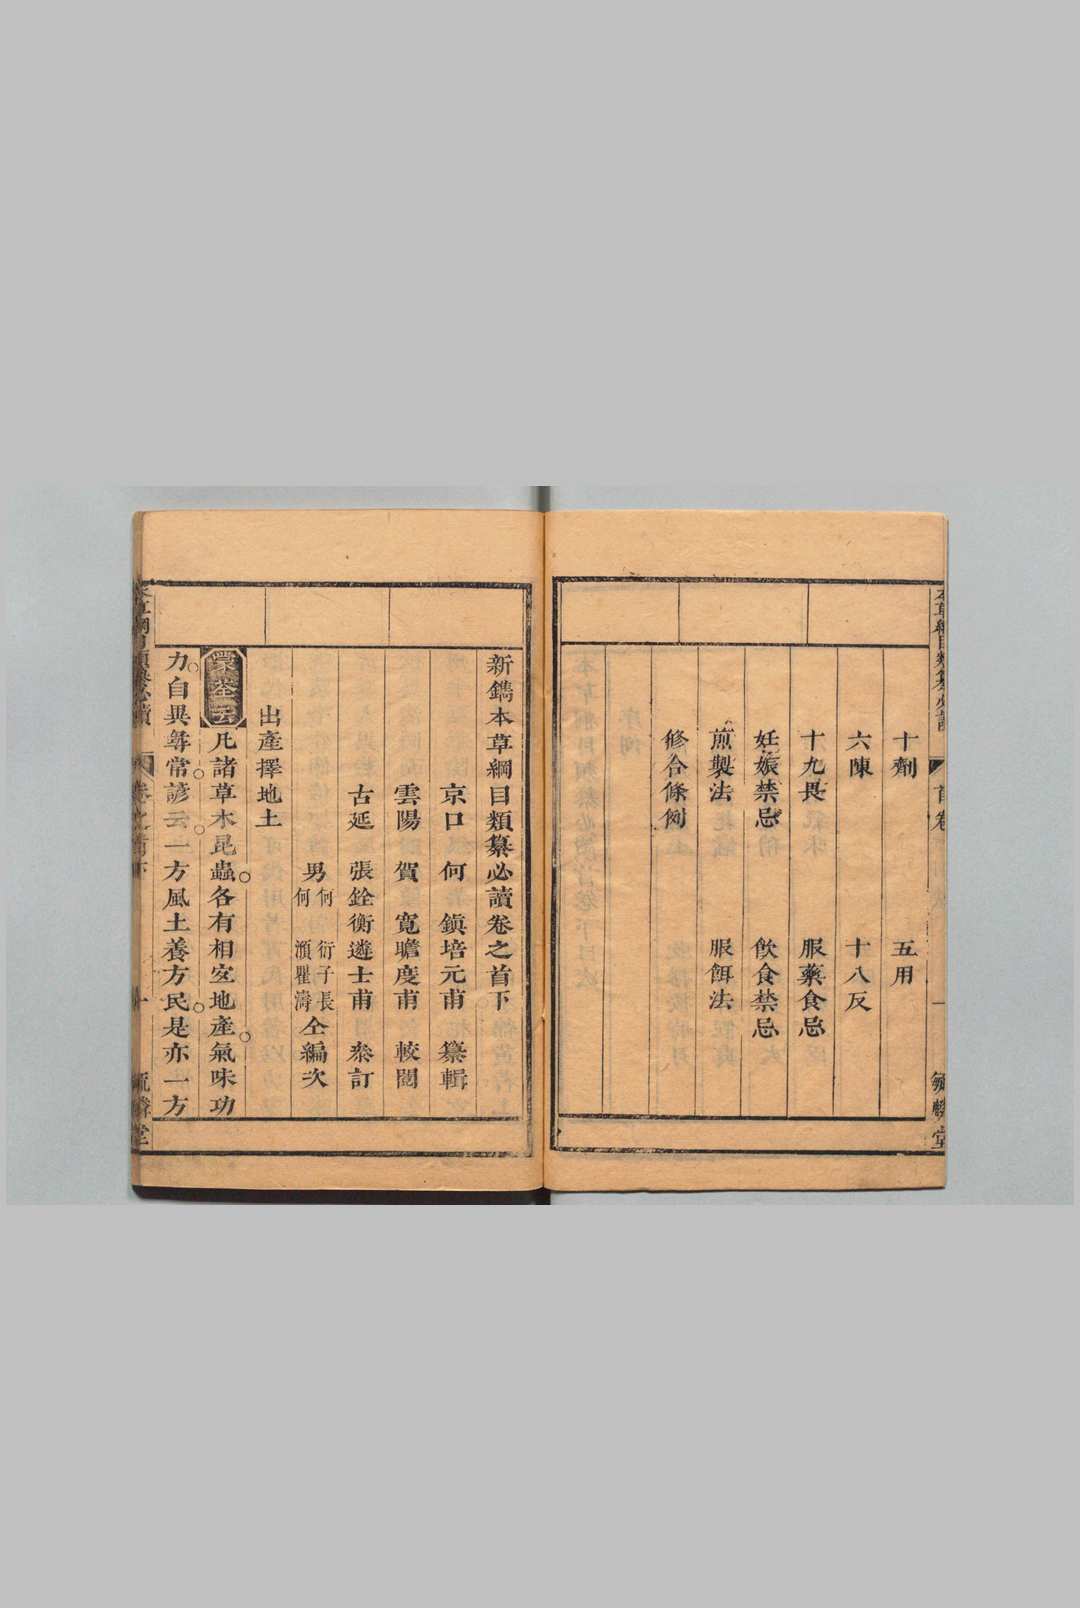 十劑　五用
六陳　十八反
十九畏　服藥食忌
妊娠禁忌　飲食禁忌
煎製法　服餌法
修合條例
首卷
毓麟堂
新鐫本草綱目類纂必讀卷之首下
京口　何　鎮培元甫　纂輯
雲陽　賀　寬瞻度甫　較閱
古延　張銓衡遴士甫　叅訂
男何　衍子長
何　瀕瞿濤　仝編次
出產擇地土
蒙筌云凡諸草木昆蟲各有相宐地產氣味功
力自異尋常諺云一方風土養方民是亦一方
本草綱目類纂必讀